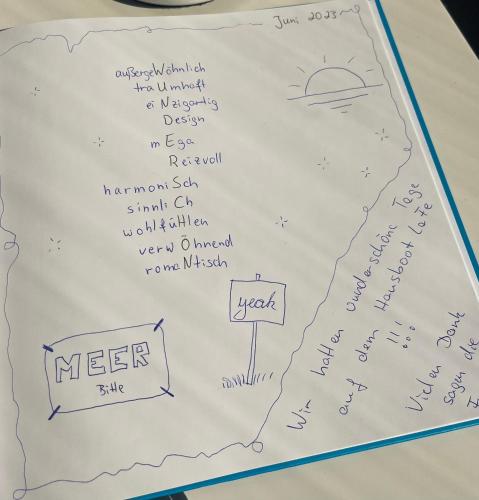 Juni 2023
außergeWöhnlich
traUmhaft
eiNzigartig
Design
mEga
Reizvoll
harmoniSch
sinnliCh
wohlfüHlen
verwÖhnend
romaNtisch
yeah
MEER
Bitte
Wir hatten wunderschöne Tage
auf dem Hausboot Lete
!!!
Vielen Dank
sagen die